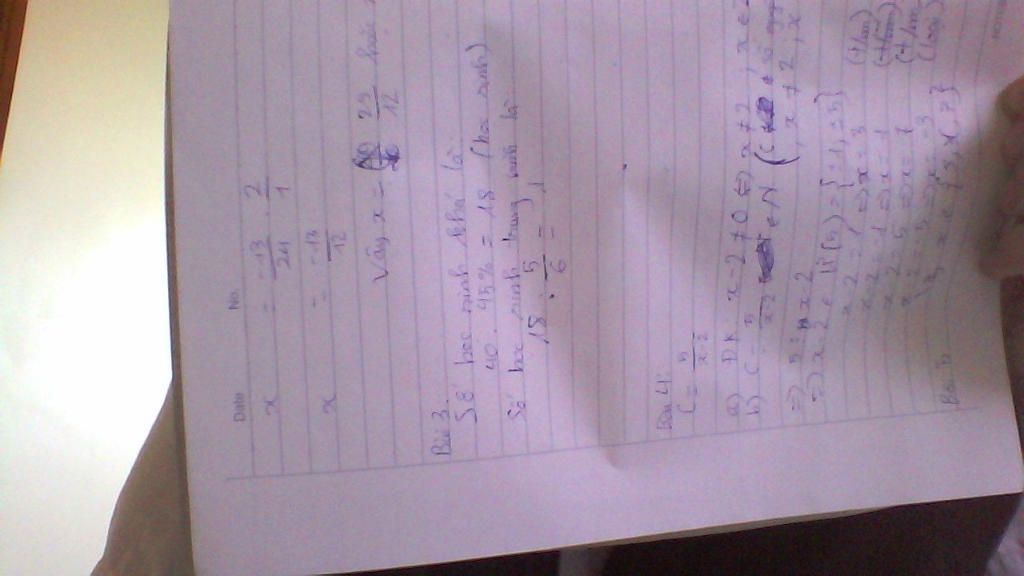 Date No.
x = -13/24 . 2/1
x = -13/12
Vậy x = 25/12 hoặc
Bài 3.
Số học sinh khá là
40 . 45% = 18 (học sinh)
Số học sinh trung bình là
18 . 5/6 =
Bài 4:
C = 5/x-2
a) ĐK x-2 ≠ 0 <=> x ≠ 2 , x ∈ Z
b) C = 5/x-2 ∈ N ( x ≠ 2, x
=> 5 ⋮ x-2
=> x-2 ∈ Ư(5) = {±1, ±5}
x-2 = 1 => x = 3 (t/m)
x-2 = -1 => x = 1 (t/m)
x-2 = 5 => x = 7 (t/m)
x-2 = -5 => x = -3 (loại)
x ∈ {3, 7}
Bài 5